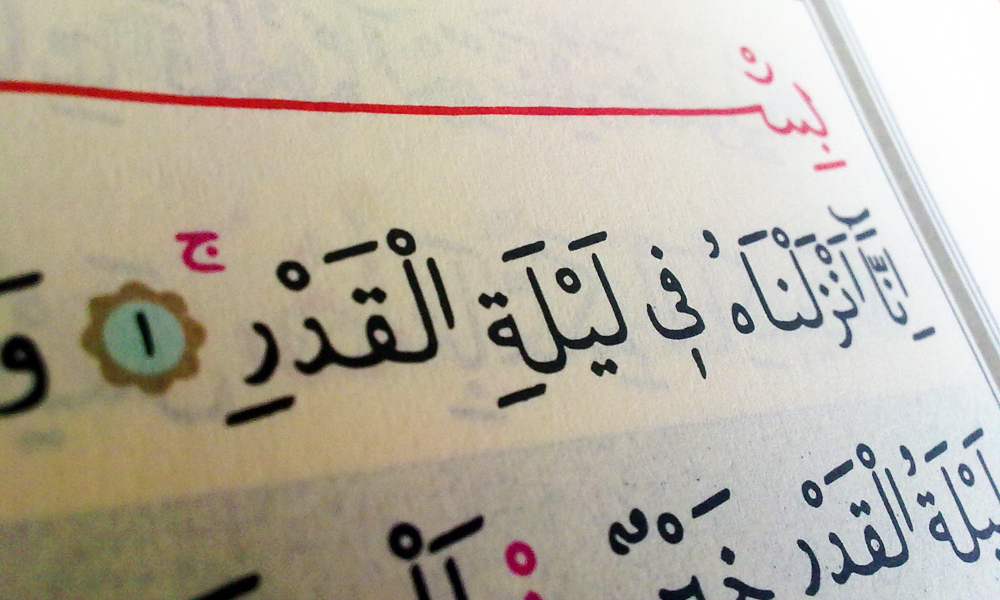 بِسْ
اِنَّٓا اَنْزَلْنَاهُ فٖي لَيْلَةِ الْقَدْرِ ۚ ١ وَ
لَيْلَةُ الْقَدْرِ خَيْرٌ